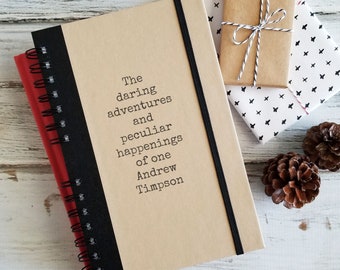 The
daring
adventures
and
peculiar
happenings
of one
Andrew
Timpson